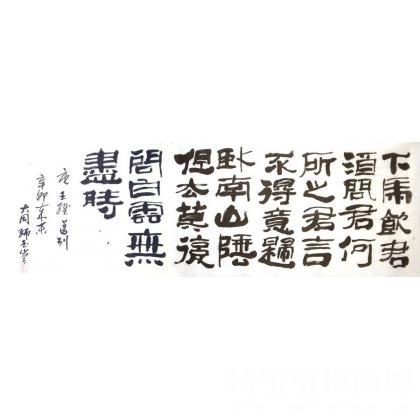 下馬飲君
酒問君何
所之君言
不得意歸
臥南山陲
但去莫復
問白雲無
盡時
唐王維送別
辛卯
大同